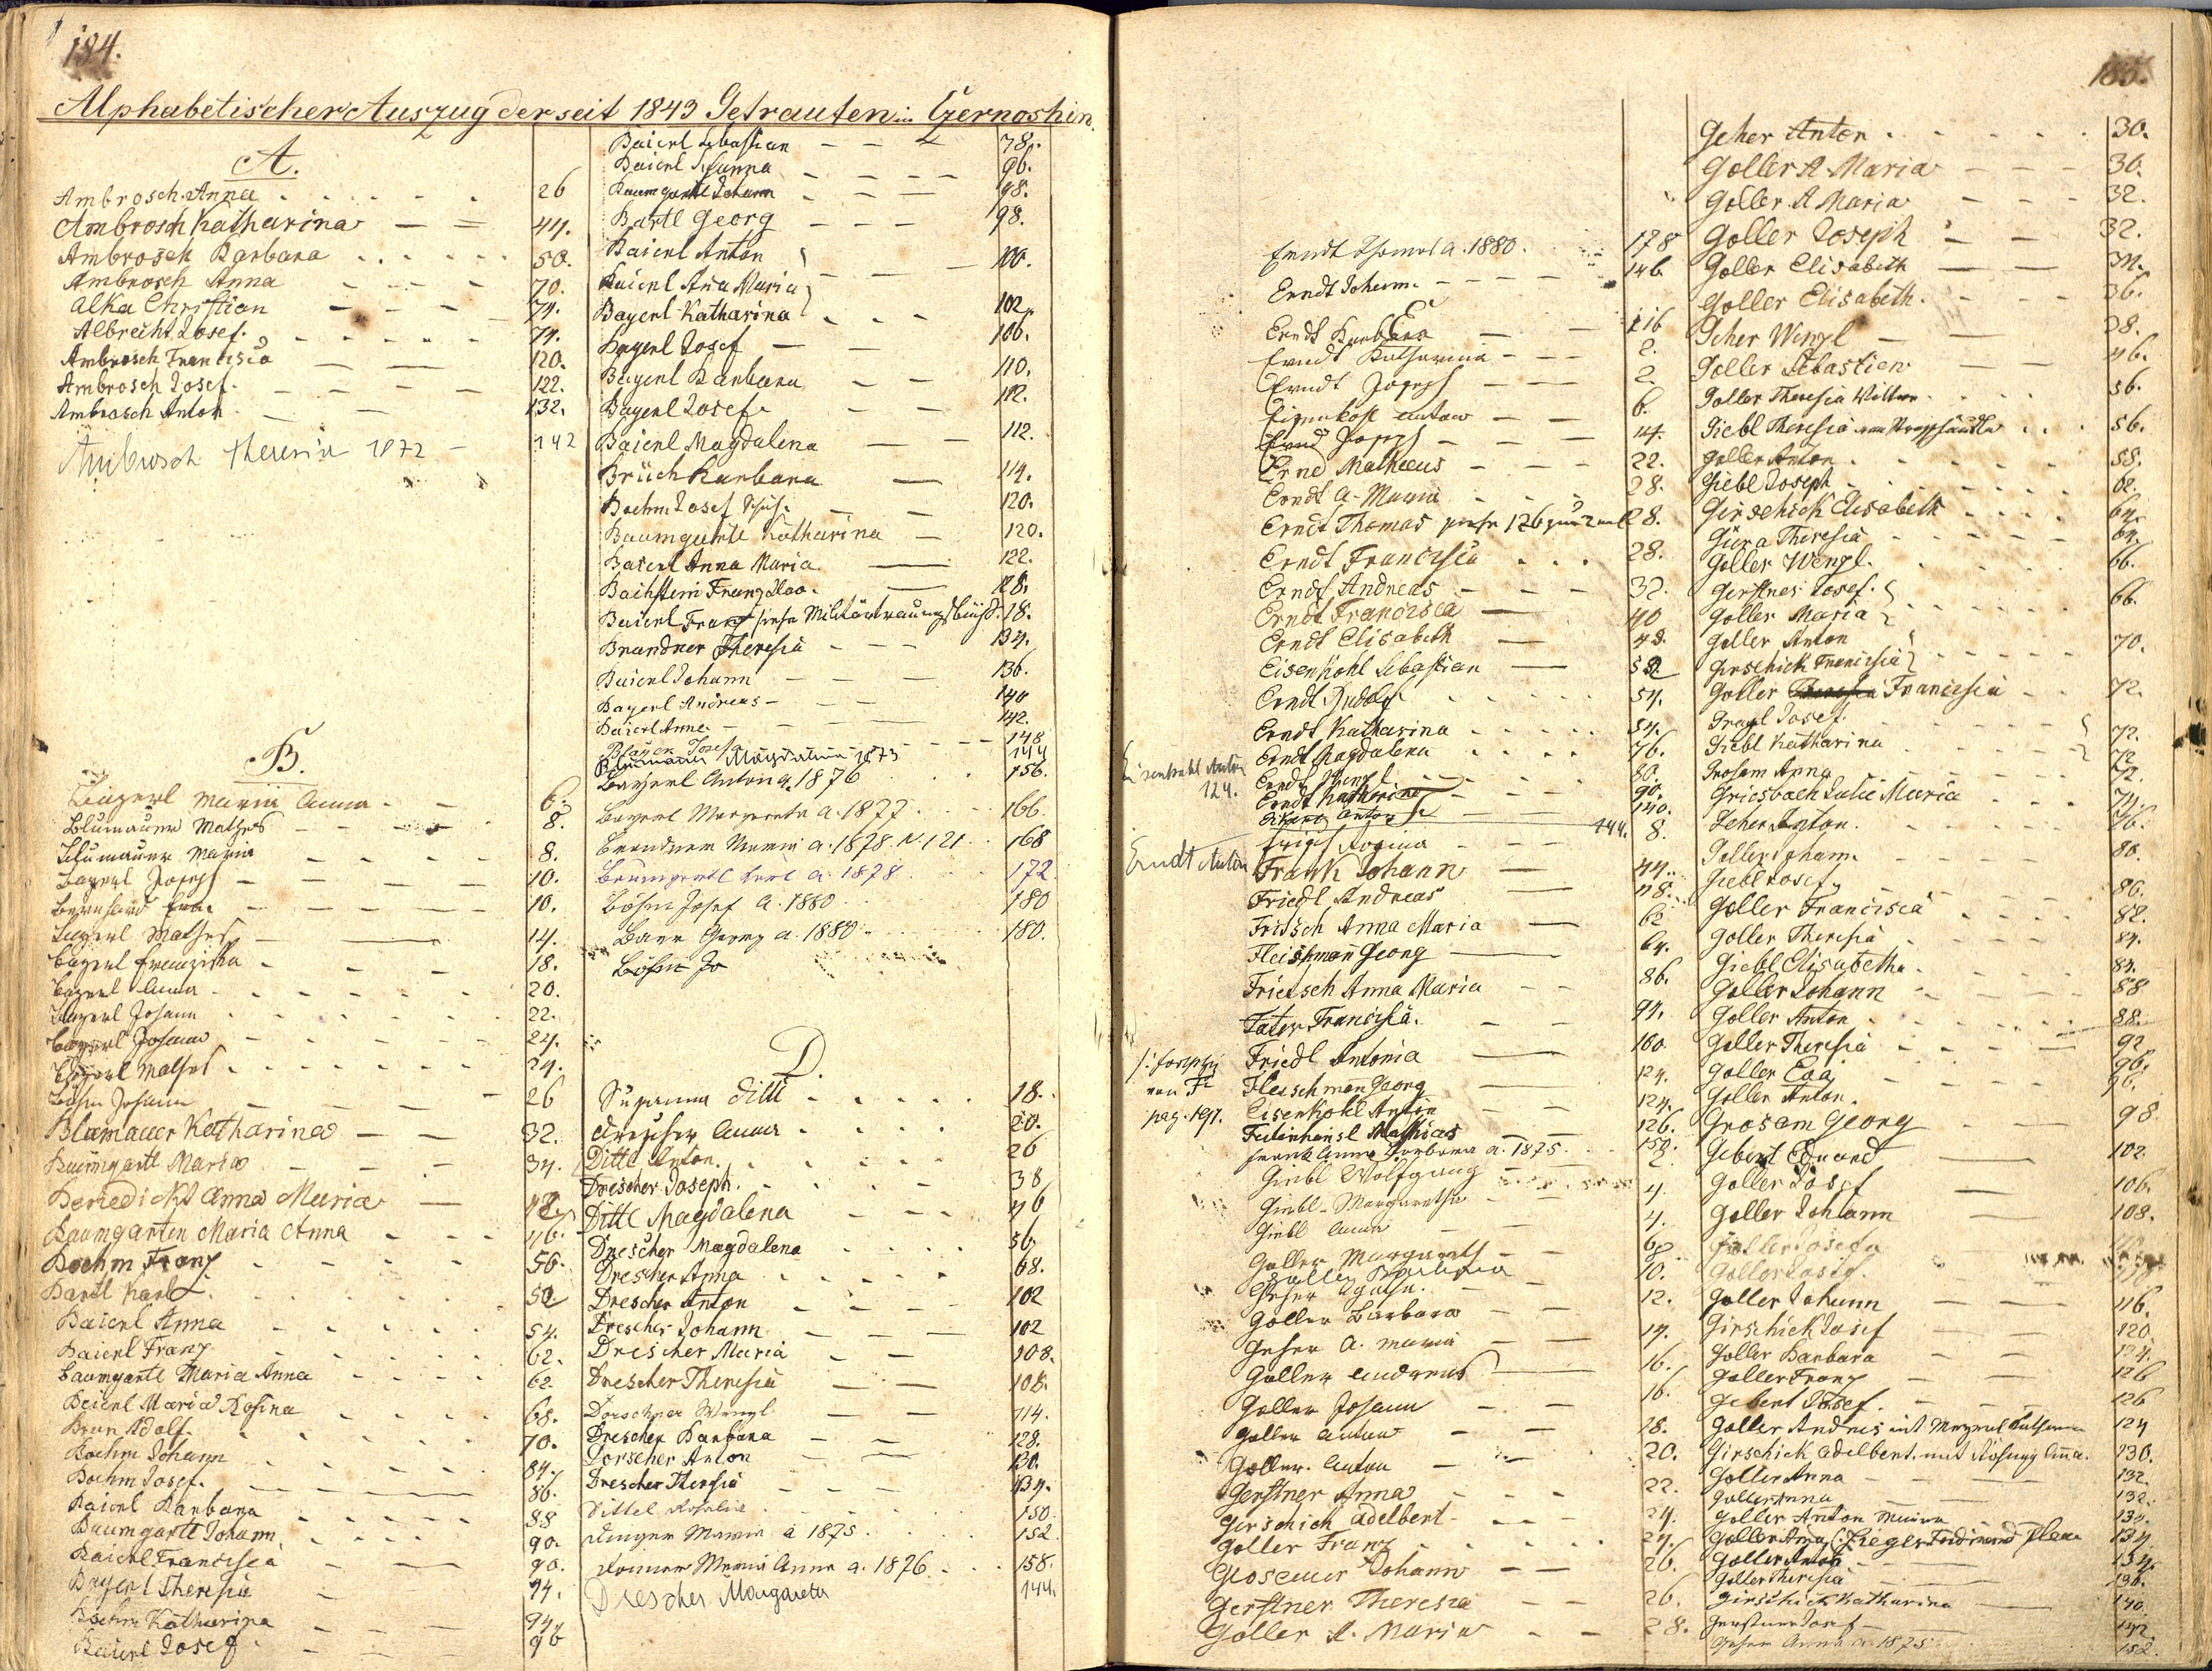 184.
Alphabetischer Auszug der seit 1843 Getrauten in Czernoshin.
A.
Ambrosch Anna 26
Ambrosch Katharina 44.
Ambrosch Barbara 50.
Ambrosch Anna 70.
Alka Christian 74.
Albrecht Josef. 74.
Ambrosch Francisca 120.
Ambrosch Josef. 122.
Ambrosch Anton 132.
Ambrosch Theresia 1872 142
B.
Bayerl Maria Anna 6.
Blumauer Mathes 8.
Blumauer Maria 8.
Bayerl Joseph 10.
Bernhard 10.
Bayerl Mathes 14.
Bayerl Franziska 18.
Bayerl Anna 20.
Bayerl Johann 22.
Bayerl Johann 24.
Bayerl Mathes 24.
Böhm Johann 26
Blumauer Katharina 32.
Baumgartl Maria 34.
Benedickt Anna Maria 42.
Baumgarten Maria Anna 46.
Boehm Franz 56.
Bartl Karl 52
Baierl Anna 54.
Baierl Franz 62.
Baumgartl Maria Anna 62.
Beierl Maria Rosina 68.
Brun Adolf. 70.
Boehm Johann 84.
Boehm Josef. 86.
Baierl Barbara 88
Baumgartl Johann 90.
Baierl Francisca 90.
Bayerl Theresia 94.
Boehm Katharina 94.
Baierl Josef 96
Baierl Sebastian 78.
Baierl Susanna 96.
Baumgartl Johann 98.
Bartl Georg 98.
Baierl Anton
Baierl Ana Maria 100.
Bayerl Katharina 102.
Bayerl Josef 106.
Bayerl Barbara 110.
Bayerl Josef. 112.
Baierl Magdalena 112.
Brüch Barbara 114.
Boehm Josef 120.
Baumgartl Katharina 120.
Baierl Anna Maria 122.
Bachstein Franz 128.
Baierl Franz siehe Militärtrauungsbuch S. 18.
Brandner Theresia 134.
Baierl Johann 136.
Bayerl Andreas 140
Baierl Anna 142.
Josef 148
Blumauer Magdalena 1873 144
Bayerl Anton a. 1876 156.
Bayerl Margareta a. 1877 166
Brandner Maria a. 1878 N. 121 168
Baumgartl Karl a. 1878 172
Böhm Josef a. 1880 180
Baier Georg a. 1880 180.
Böhm Jo
D.
Susanna Dittl 18.
Drescher Anna 20.
Dittl Anton. 26
Drescher Joseph. 38
Dittl Magdalena 46
Drescher Magdalena 56
Drescher Anna 68.
Drescher Anton 102
Drescher Johann 102
Drescher Maria 108.
Drescher Theresia 108.
Dorschner Wenzl 114.
Drescher Barbara 128.
Dorscher Anton 130.
Drescher Theresia 134.
Dittel Rosalia 150.
Maria a 1875 152
Maria Anna a. 1876 158.
Drescher Margareta 144.
185.
Erndt Thomas a. 1880. 178
Erndt Johann. 146
E
Erndt Barbara 116
Erndt Katharina 2.
Erndt Joseph 2.
Eisenkohl Anton 6.
Ernd Joseph 14.
Ernd Matheeus 22.
Erndt A. Maria 28.
Erndt Thomas siehe 126 28.
Erndt Francisca 28.
Erndt Andreas 32.
Erndt Francisca 40
Erndt Elisabeth 48.
Eisenkohl Sebastian 52
Erndt Rudolf 54.
Erndt Katharina 54.
Erndt Magdalena 76.
Eisenkohl Anton 124.
Erndt Wenzl 80.
Erndt Katharina 90.
Anton 140.
Erndt Anton 144.
Rosina 8.
Frank Johann 44.
Friedl Andreas 48.
Fritsch Anna Maria 62
Fleischman Georg 64.
Frietsch Anna Maria 86.
Tater Francisca. 94.
Friedl Antonia 100
Fleischman Georg 124.
Eisenkohl Anton 124.
Mathias 126.
Anna Barbara a. 1875 150.
von F
pag. 191.
Giebl Wolfgang 2.
Giebl Margaretha 4.
Giebl Anna 4.
Goller Margareth 6.
Goller 8.
Geher 10.
Goller Barbara 12.
Geher A. Maria 14.
Goller Andreas 16.
Goller Johann 16.
Goller Anton 18.
Goller Anton 20.
Gerstner Anna 22.
Girschick Adelbert 24.
Goller Franz 24.
Johann 26.
Gerstner Theresia 26.
Goller A. Maria 28.
Geher Anton 30.
Goller A. Maria 30.
Goller A Maria 32.
Goller Joseph 32.
Goller Elisabeth 34.
Goller Elisabeth. 36.
Geher Wenzl 38.
Goller Sebastian 46.
Goller Theresia Wittwe 56.
Giebl Theresia 56.
Goller Anton 58.
Giebl Joseph 62.
Girschick Elisabeth 64.
Theresia 64.
Goller Wenzl. 66.
Gerstner Josef.
Goller Maria 66.
Goller Anton
Girschick Francisca 70.
Goller Francisca 72.
Josef.
Giebl Katharina 72.
Grosam Anna 72.
Griesbach Julie Maria 74.
Geher Anton. 76.
Goller Johann. 80.
Giebl Josef. 86.
Goller Francisca 82.
Goller Theresia 84.
Giebl Elisabetha 84.
Goller Johann 88
Goller Anton 88.
Goller Theresia 92
Goller Eva 96.
Goller Anton. 96.
Grosam Georg 98
Gebert Eduard 102
Goller Josef 106.
Goller Johann 108.
Goller Josefa
Goller Josef.
Goller Johann 116.
Girschick Josef 120.
Goller Barbara 124.
Goller Franz 126
Gebert Josef. 126
Goller Andres mit 124
Girschick Adelbert. mit Ana. 130.
Goller Anna 132.
Goller Anna 132.
Goller Anton 130.
Goller Ana Zieger Ferdinand 134
Goller Anton 134.
Goller Theresia 136.
Girschick Katharina 140.
Gerstner Josef 142
Geher Anna a. 1875 152.